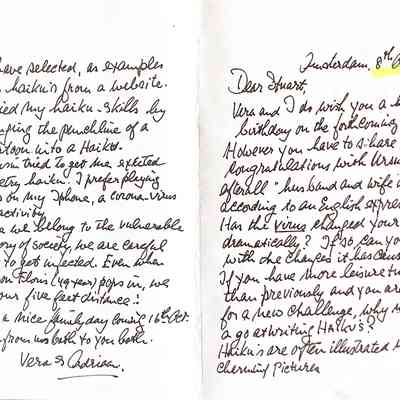 have selected, as examples
haiku's from a website.
ied my haiku-skills by
nging the punchline of a
artoon into a Haiku.
tried to get me
etry haiku. I prefer playing
s on my Iphone, a corona-virus
activity
we belong to the vulnerable
ory of society, we are careful
to get infected. Even when
on Floris (49 year) pops in, we
our five feet distance!
a nice family day coming 16th Oct.
from us both to you both.
Vera & Adrian.
Amsterdam, 8th O
Dear Stuart,
Vera and I do wish you a
birthday on the forthcoming
However you have to share
congratulations with
afterall "husband and wife
according to an English expre
Has the virus changed your
dramatically? If so can you
with the changes it has caus
If you have more leisure ti
than previously and you are
for a new challenge, why n
a go at writing Haiku's?
Haiku's are often illustrated
charming pictures